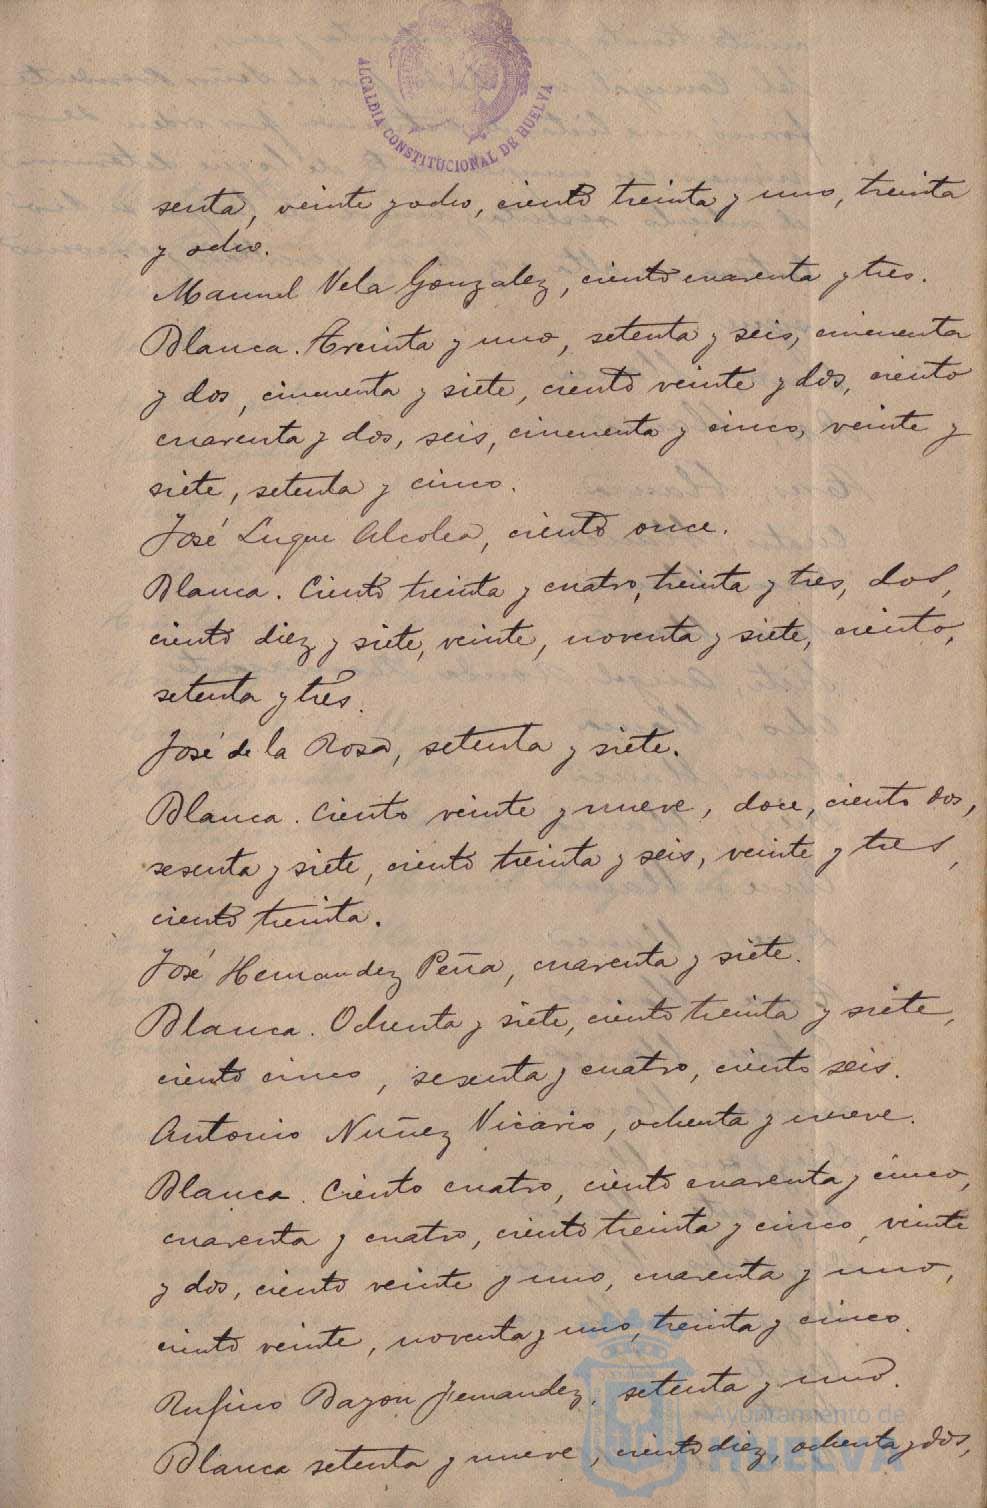 ALCALDIA CONSTITUCIONAL DE HUELVA
senta, veinte y ocho, ciento treinta y uno, treinta
y ocho.
Manuel Vela Gonzalez, ciento cuarenta y tres.
Blanca. Treinta y uno, setenta y seis, cincuenta
y dos, cincuenta y siete, ciento veinte y dos, ciento
cuarenta y dos, seis, cincuenta y cinco, veinte y
siete, setenta y cinco.
José Luque Alcolea, ciento once.
Blanca. Ciento treinta y cuatro, treinta y tres, dos,
ciento diez y siete, veinte, noventa y siete, ciento,
setenta y tres.
José de la Rosa, setenta y siete.
Blanca. Ciento veinte y nueve, doce, ciento dos,
sesenta y siete, ciento treinta y seis, veinte y tres,
ciento treinta.
José Hernandez Peña, cuarenta y siete.
Blanca. Ochenta y siete, ciento treinta y siete,
ciento cinco, sesenta y cuatro, ciento seis.
Antonio Nuñez Vicario, ochenta y nueve.
Blanca. Ciento cuatro, ciento cuarenta y cinco,
cuarenta y cuatro, ciento treinta y cinco, veinte
y dos, ciento veinte y uno, cuarenta y uno,
ciento veinte, noventa y uno, treinta y cinco.
Rufino Bayon Fernandez, setenta y uno.
Blanca setenta y nueve, ciento diez, ochenta y dos,
Ayuntamiento de
HUELVA